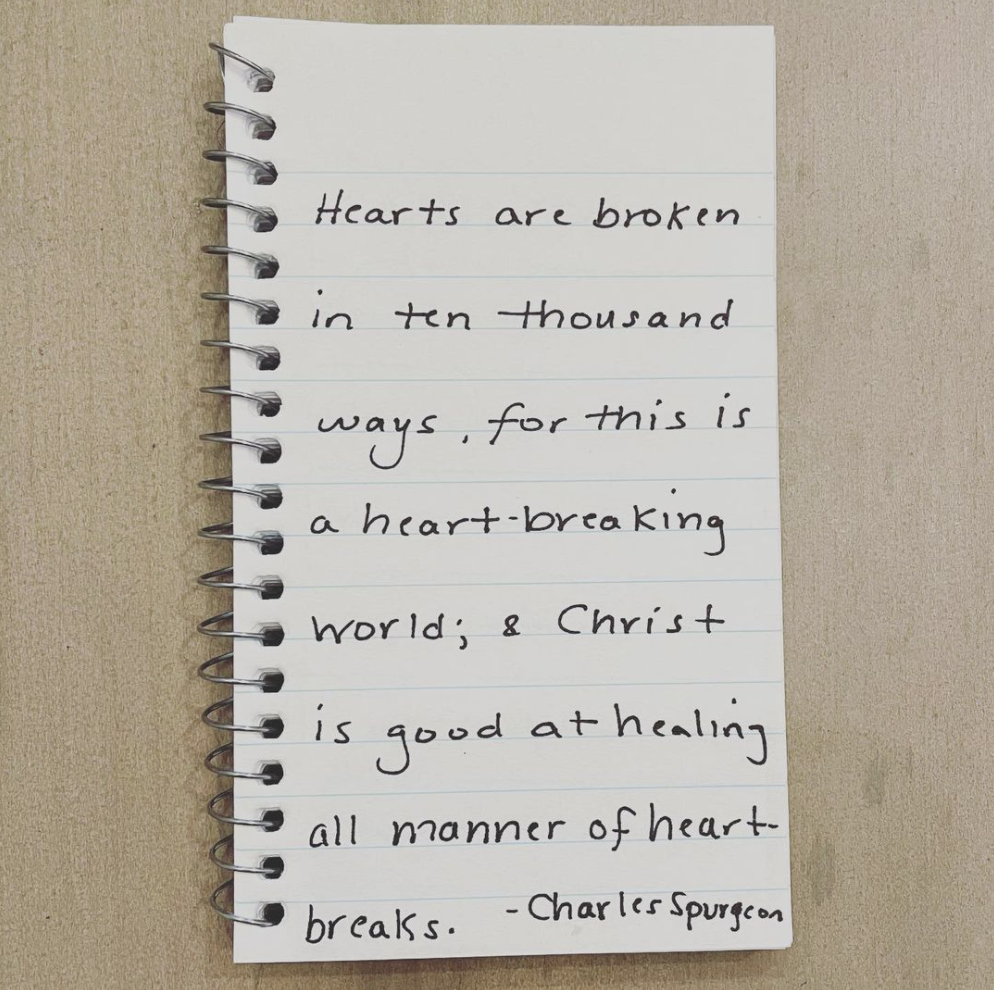 Hearts are broken
in ten thousand
ways, for this is
a heart-breaking
world; & Christ
is good at healing
all manner of heart-
breaks. - Charles Spurgeon